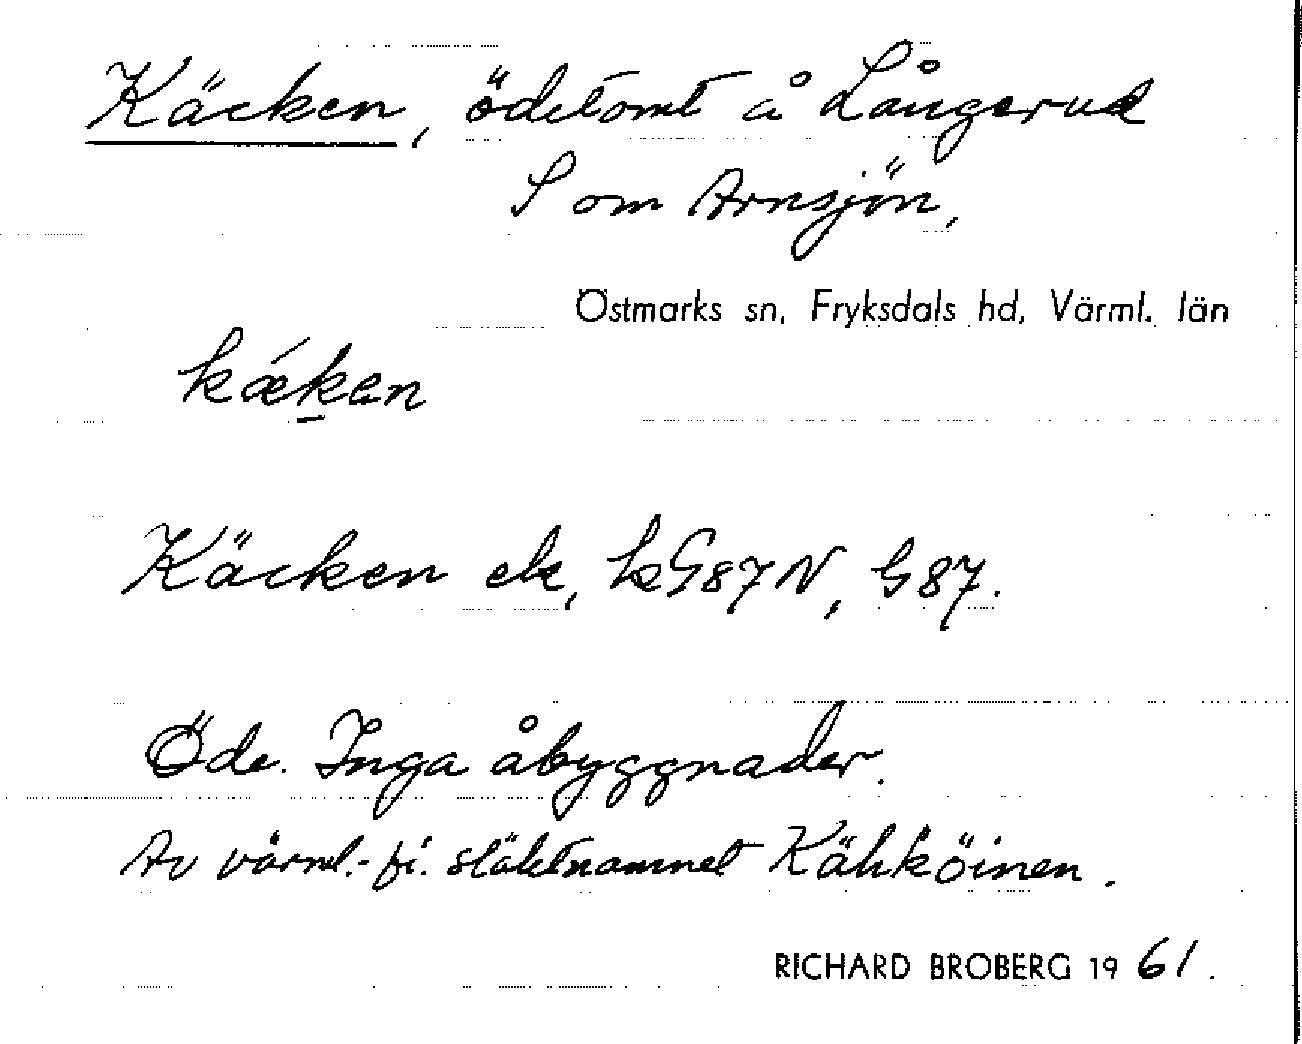 Käcken, ödetomt å Långerud
S om Arnsjön,
Östmarks sn, Fryksdals hd, Värml. län
kǽkan
Käcken ek, hG87N, G87.
Öde. Inga åbyggnader.
Av värml.-fi. släktnamnet Kähköinen.
RICHARD BROBERG 1961.